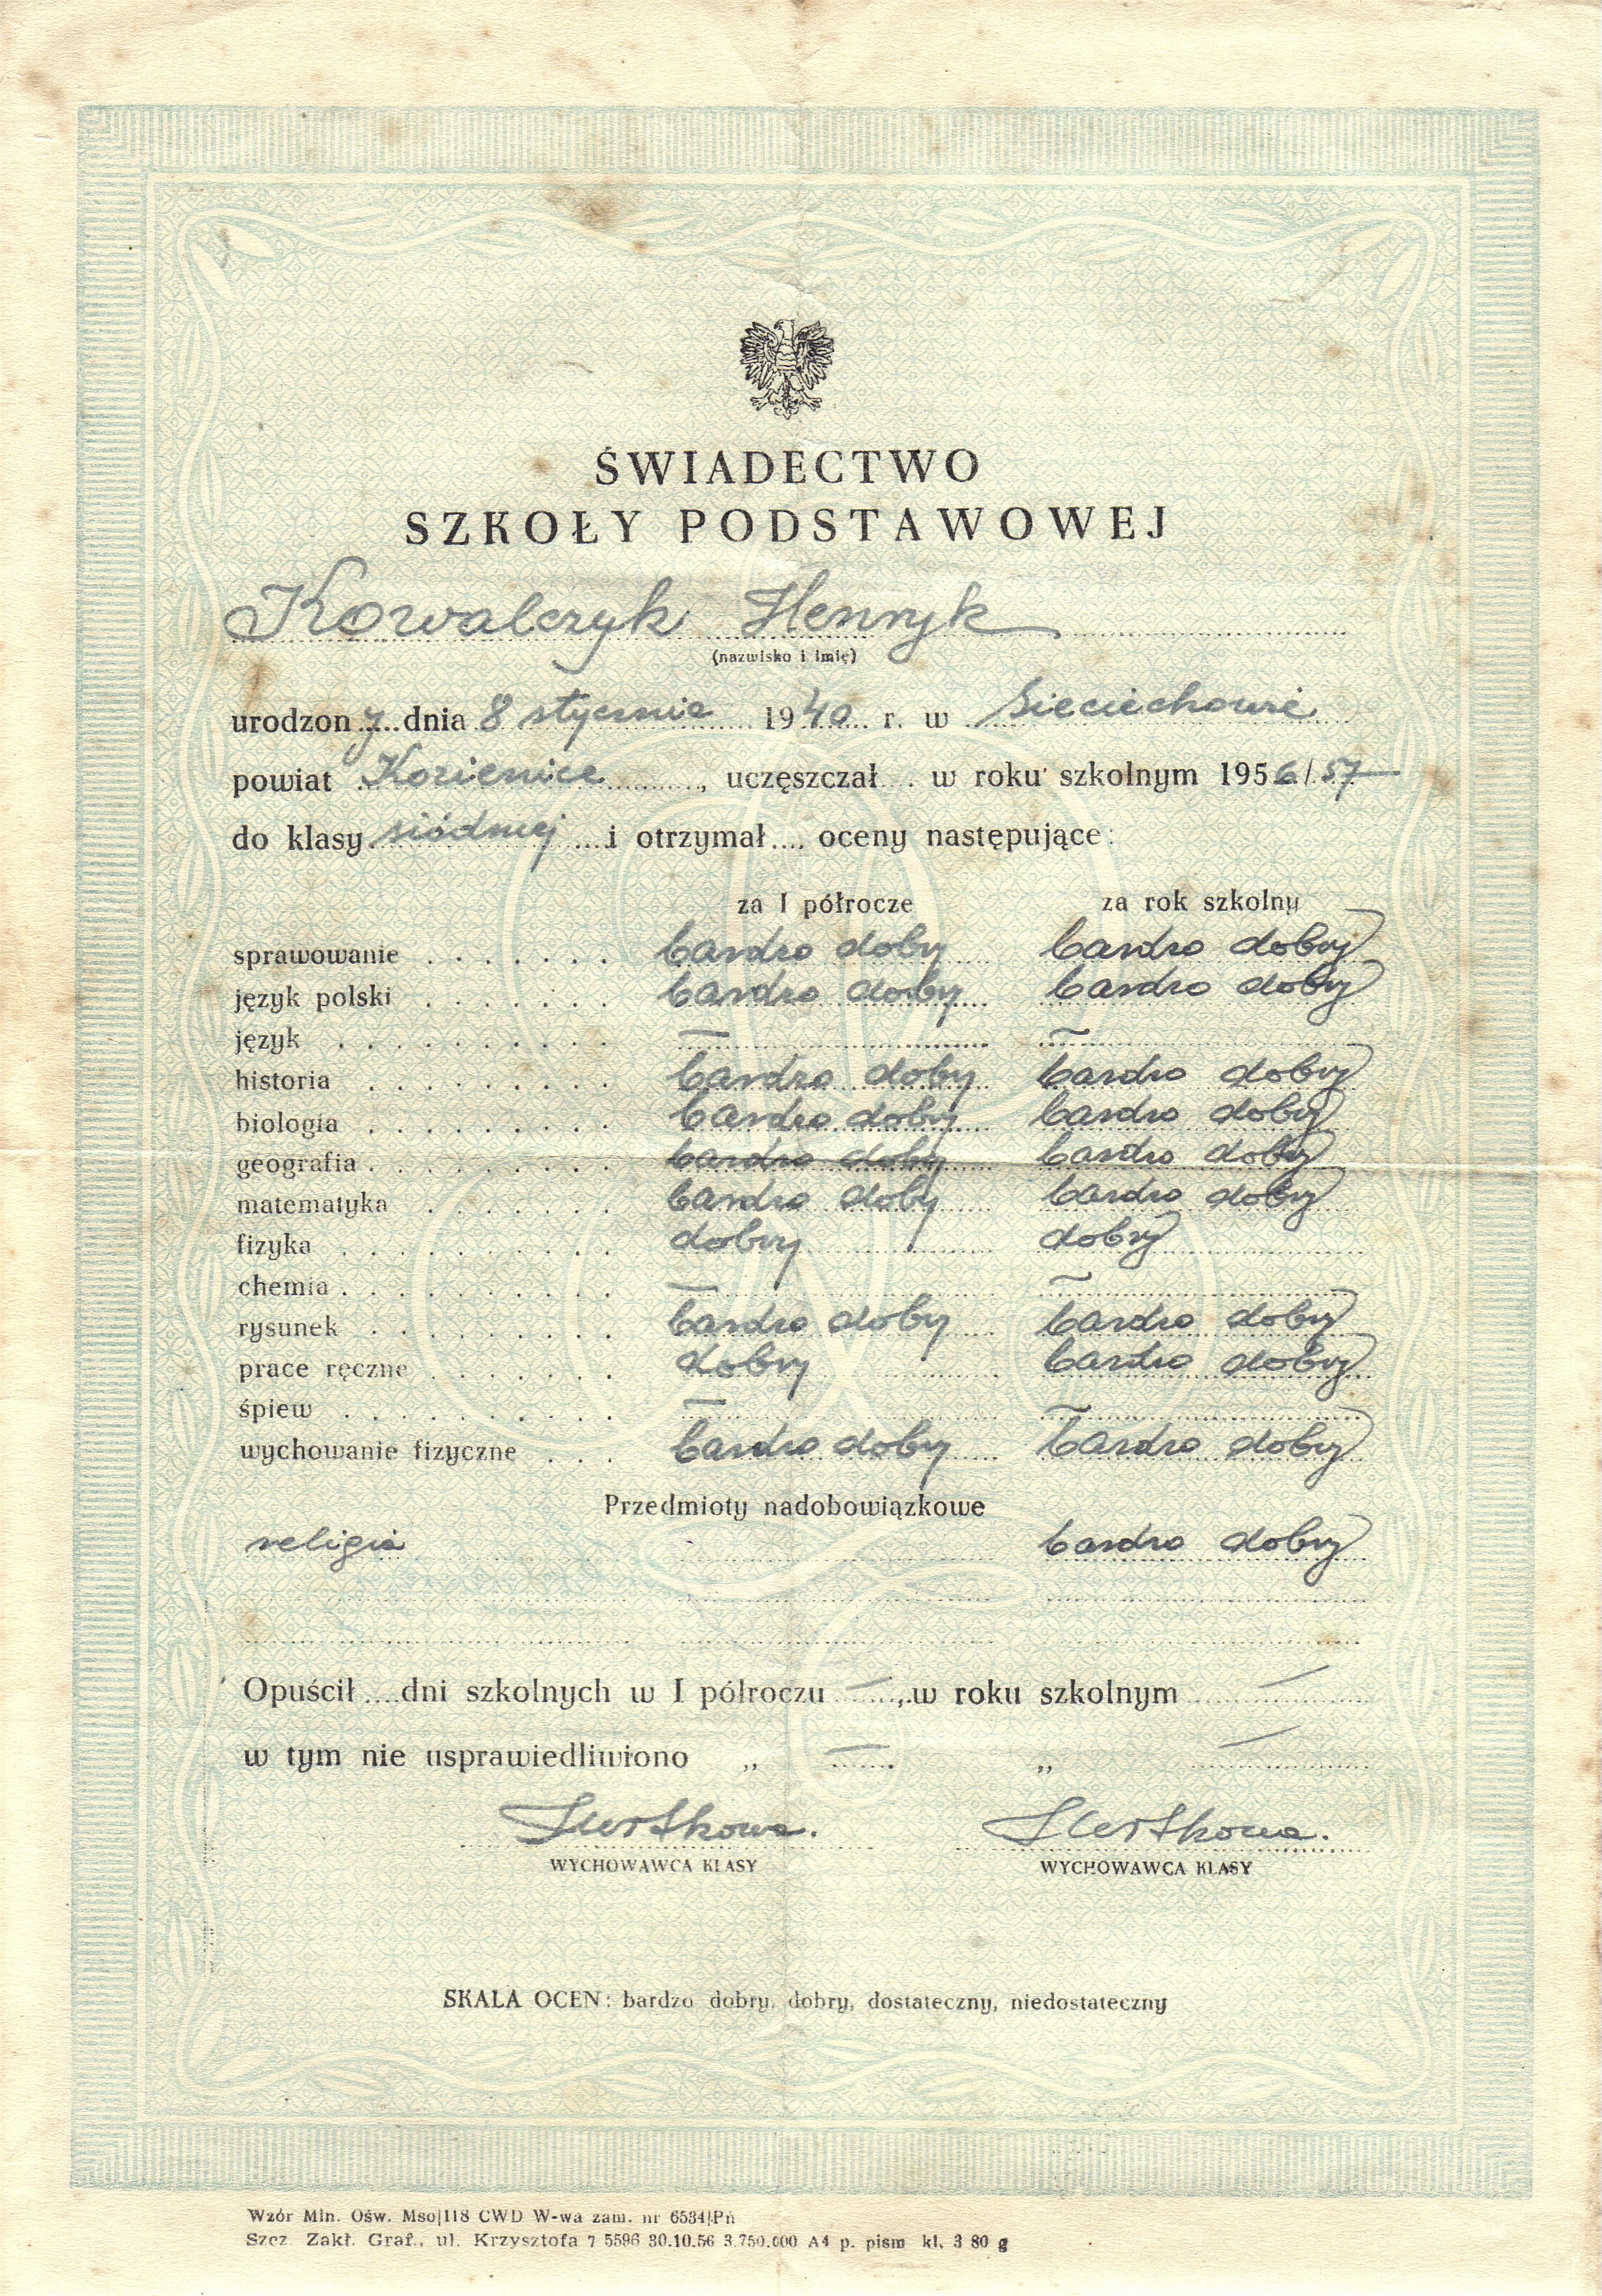 ŚWIADECTWO
SZKOŁY PODSTAWOWEJ
Kowalczyk Henryk
(nazwisko i imię)
urodzony dnia 8 stycznia 1940 r. w Sieciechowie
powiat Kozienice, uczęszczał w roku szkolnym 1956/57
do klasy siódmej i otrzymał oceny następujące:
za I półrocze za rok szkolny
sprawowanie bardzo dobry bardzo dobry
język polski bardzo dobry bardzo dobry
język — —
historia bardzo doby bardzo dobry
biologia bardzo doby bardzo dobry
geografia bardzo doby bardzo dobry
matematyka bardzo doby bardzo dobry
fizyka dobry dobry
chemia — —
rysunek bardzo doby bardzo dobry
prace ręczne dobry bardzo dobry
śpiew — —
wychowanie fizyczne bardzo doby bardzo dobry
Przedmioty nadobowiązkowe
religia bardzo dobry
Opuścił dni szkolnych w I półroczu —, w roku szkolnym —
w tym nie usprawiedliwiono „ — „ —
WYCHOWAWCA KLASY WYCHOWAWCA KLASY
SKALA OCEN: bardzo dobry, dobry, dostateczny, niedostateczny
Wzór Min. Ośw. Mso|118 CWD W-wa zam. nr 6534|Pń
Szcz. Zakł. Graf., ul. Krzysztofa 7 5596 30.10.56 3.750.000 A4 p. pism kl. 3 80 g